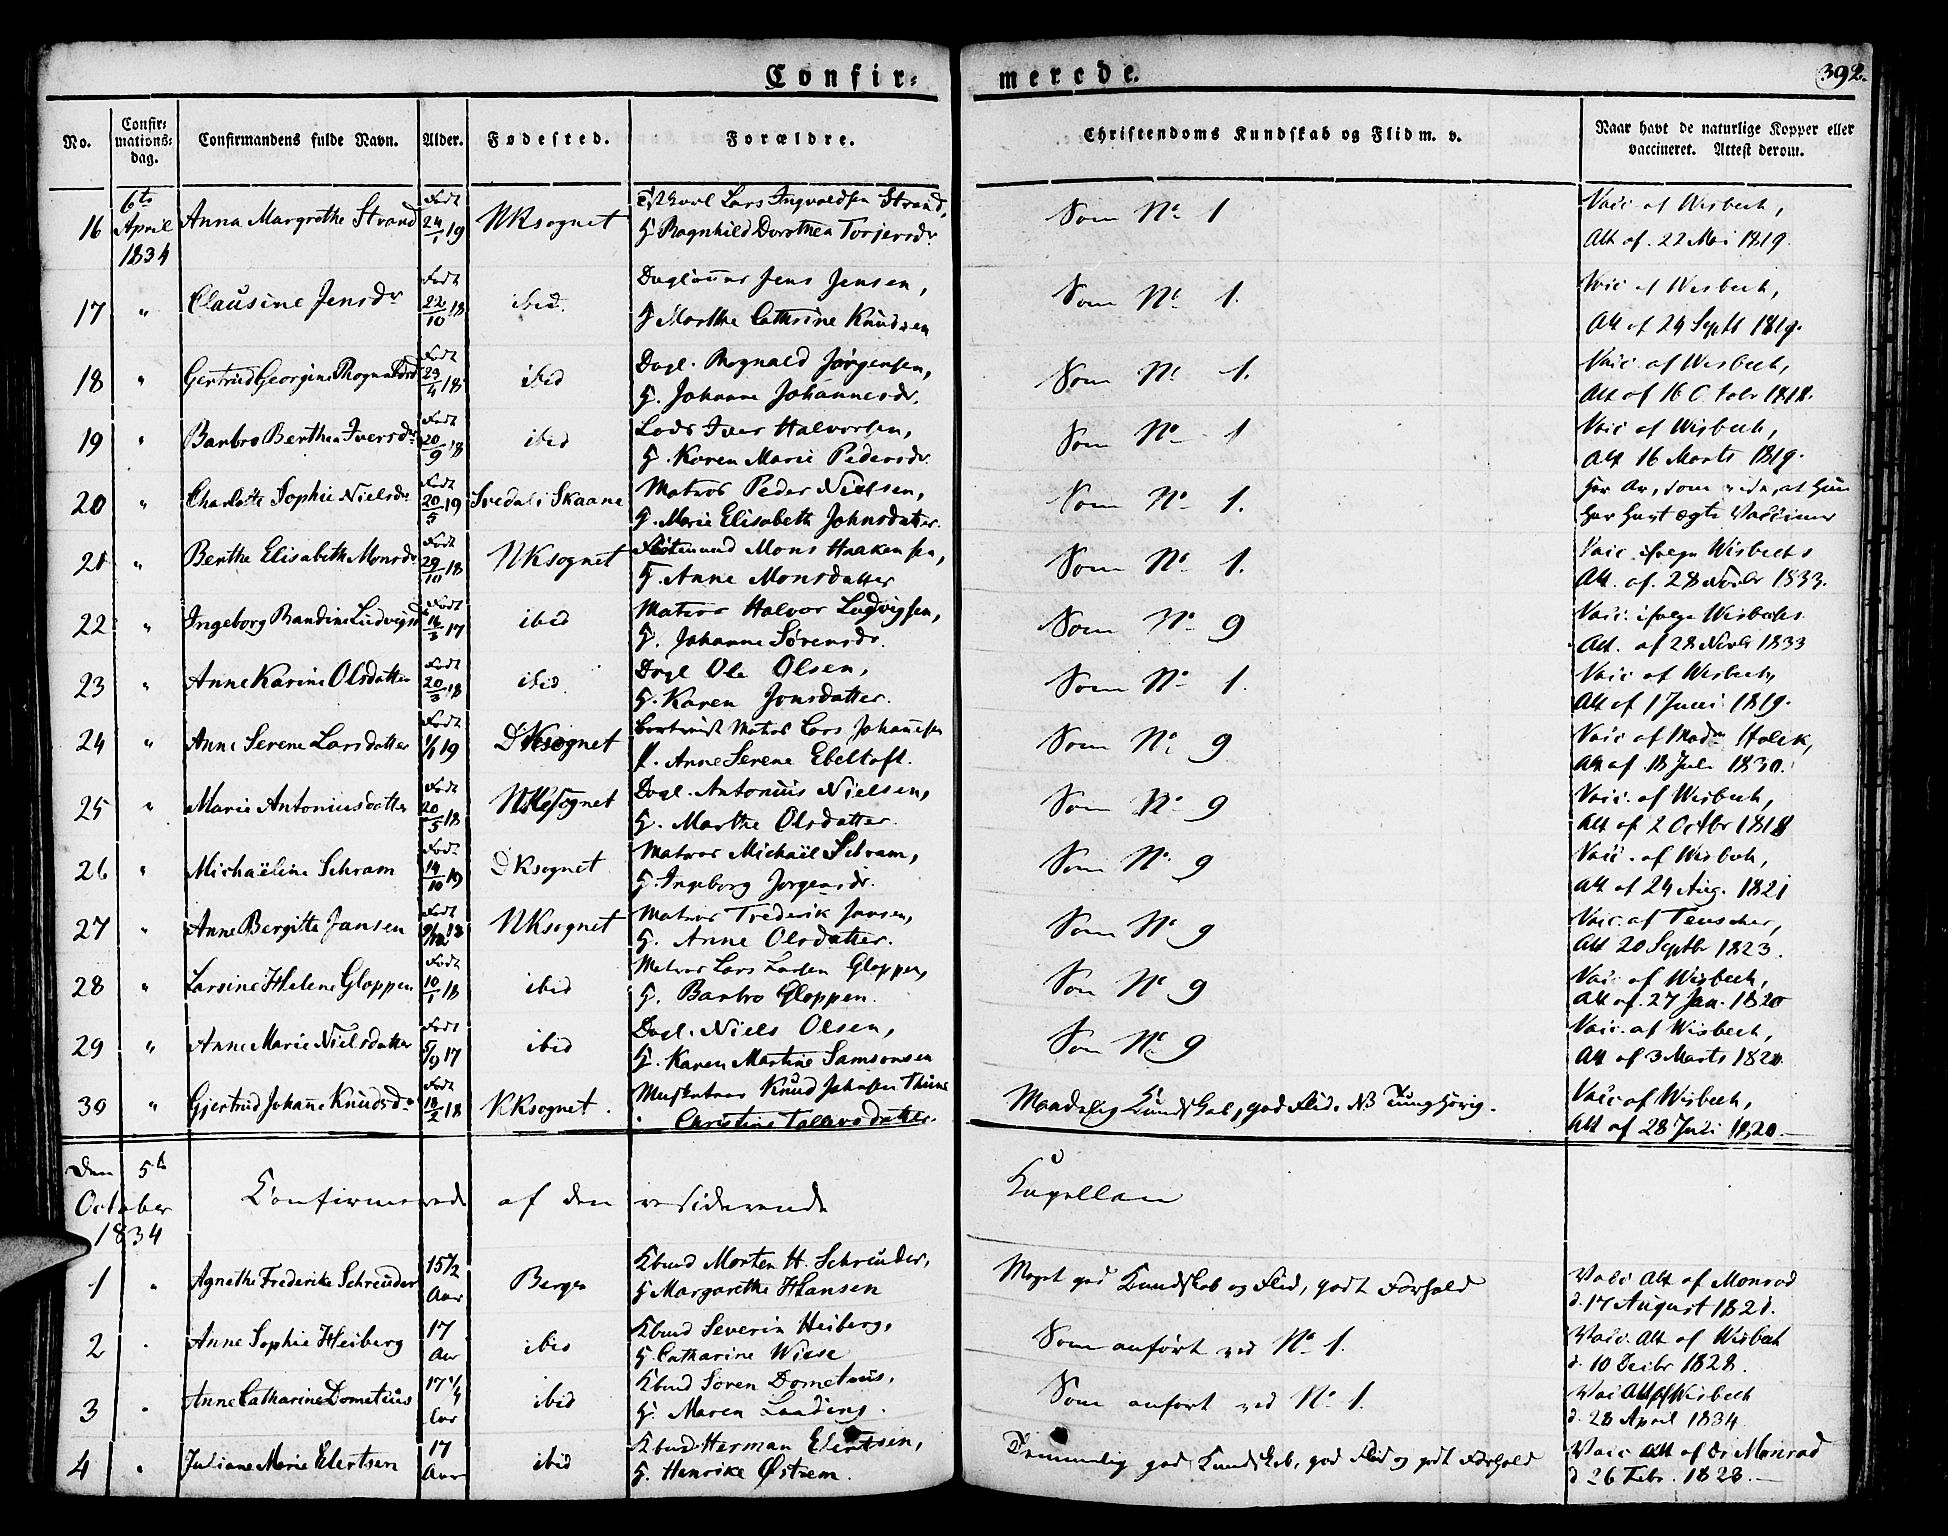 Confir=
merede.
392.
No.
Confir=
mations=
dag.
Confirmandens fulde Navn.
Alder.
Fødested.
Forældre.
Christendoms Kundskab og Flid m. v.
Naar havt de naturlige Kopper eller
vaccineret. Attest derom.
6te April 1834
16 Anna Margrethe Strand Født 24/1 19 NKsognet Lars Ingvaldsen Strand,
H. Ragnhild Dorothea Torjersdr
Som No 1
Vacc af Wisbech,
Att af 22 Mai 1819.
17 " Clausine Jensdr Født 22/10 18 ibid. Dagl Jens Jensen,
H Marthe Cathrine Knudsen
Som No 1.
Vacc af Wisbech,
Att af 24 Septb 1819.
18 " Gertrud Georgine Født 23/4 18 ibid Dagl. Rognald Jørgensen,
H. Johanne Johannesdr.
Som No 1.
Vacc. af Wisbech,
Att af 16 Octobr 1818.
19 " Barbro Berthea Iversdr Født 20/9 18 ibid Lods Iver Halvorsen,
H. Karen Marie Pedersdr.
Som No 1
Vacc af Wisbech,
Att 16 Marts 1819.
20 " Charlotte Sophie Nielsdr Født 20/5 19 Svedal i Skaane Matros Peder Nielsen,
H. Marie Elisabeth Johnsdatter.
Som No 1.
har Ar, som at hun
har havt ægte Vacciner
21 " Berthe Elisabeth Monsdr Født 29/10 18 NKsognet Mons Haakensen,
H. Anne Monsdatter
Som No 1.
Vacc ifølge Wisbechs
Att. af. 28 Novbr 1833.
22 " Ingeborg Bandine Ludvigsd Født 17 ibid Matros Halvor Ludvigsen,
H. Johanne Sørensdr.
Som No 9
Vacc. ifølge Wisbechs
Att. af 28 Novbr 1833
23 " Anne Karine Olsdatter Født 20/3 18 ibid. Dagl Ole Olsen,
H. Karen Jonsdatter.
Som No 1.
Vacc af Wisbech,
Att af 1 Juni 1819.
24 " Anne Serene Larsdatter Født 1/9 19 DKsognet Matros Lars Johannesen
Anne Serene Ebeltoft.
Som No 9
Vacc af Mad Holck,
Att af 18 Juli 1830.
25 " Marie Antoniusdatter Født 20/5 18 NKsognet Dagl. Antonius Nielsen,
H. Marthe Olsdatter.
Som No 9
Vacc. af Wisbech,
Att af 2 Octbr 1818
26 " Michaëline Schram Født 14/10 19 DKsognet Matros Michaël Schram,
H. Ingeborg Jørgensdr.
Som No. 9
Vacc. af Wisbech,
Att af 24 Aug. 1821
27 " Anne Bergitte Jansen Født NKsognet Matros Frederik Jansen,
H. Anne Olsdatter.
Som No 9
Vacc. af Teuscher,
Att 20 Septbr 1823.
28 " Larsine Helene Gloppen Født 10/1 18 ibid Matros Lars Larsen Gloppen,
H. Barbro Gloppen.
Som No 9
Vacc af Wisbech,
Att af. 27 Jan. 1820
29 " Anne Marie Nielsdatter Født 5/9 17 ibid Dagl. Niels Olsen,
H. Karen Martine Samsonsen
Som No 9
Vacc. af Wisbech,
Att af 3 Marts 1820.
30 " Gjertrud Johanne Knudsdr Født 18/2 18 KKsognet. Musketeer Knud Johnsen
Christine
Maadelig Kundskab, god Flid. NB Tunghørig.
Vacc af Wisbech,
Att af 28 Juli 1820
Den 5te October 1834
Confirmerede af den residerende Kapellan
1 " Agnethe Frederike Schreuder 15 1/2 Aar Bergen Kbmd Morten H. Schreuder,
H Margarethe Hansen
Meget god Kundskab og Flid, godt Forhold
Vacc Att af Monrad
d. 17 August 1821.
2 " Anne Sophie Heiberg 17 Aar ibid Kbmd Severin Heiberg,
H. Catharine Wiese
Som anført ved No 1.
Vacc. Att af Wisbech
d. 10 Decbr 1828.
3 " Anne Catharine Dometius 17 1/4 Aar ibid Kbmd Søren Dometius,
H. Maren
Som anført ved No 1.
Vacc Att af Wisbech
d. 28 April 1834
4 " Juliane Marie Elertsen 17 Aar ibid Kbmd Herman Elertsen,
H. Henrike Østrem.
Temmelig god Kundskab, god Flid og godt Forhold
Vacc Att af Dr Monrad
d 26 Febr. 1828.